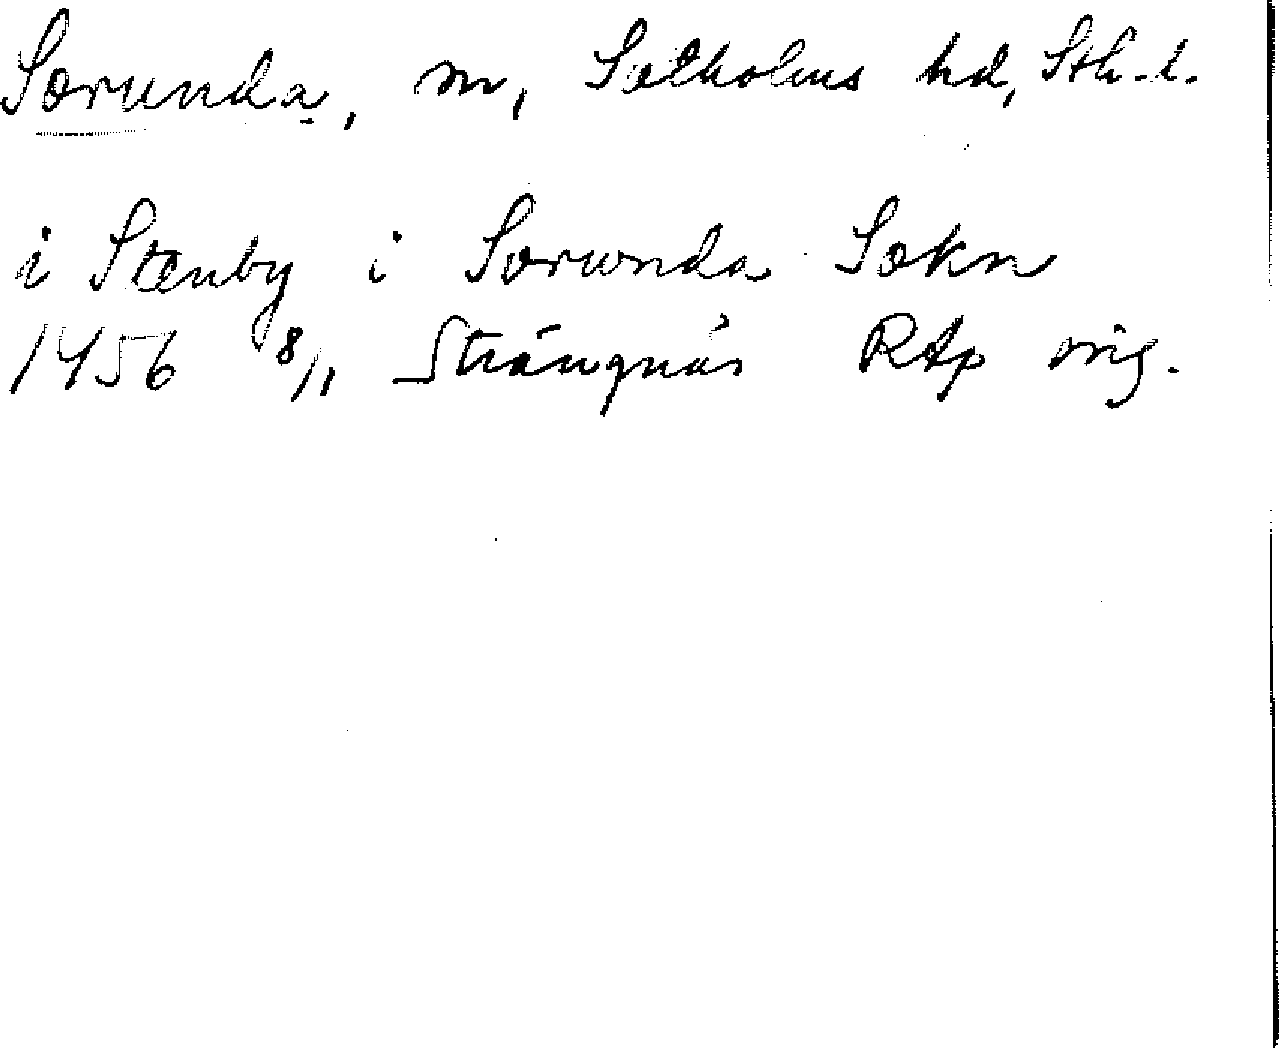 Sorunda, sn, Sotholms hd, Sth.l.
i Stenby i Sorunda Sokn
1456 8/11 Strängnäs RAp orig.